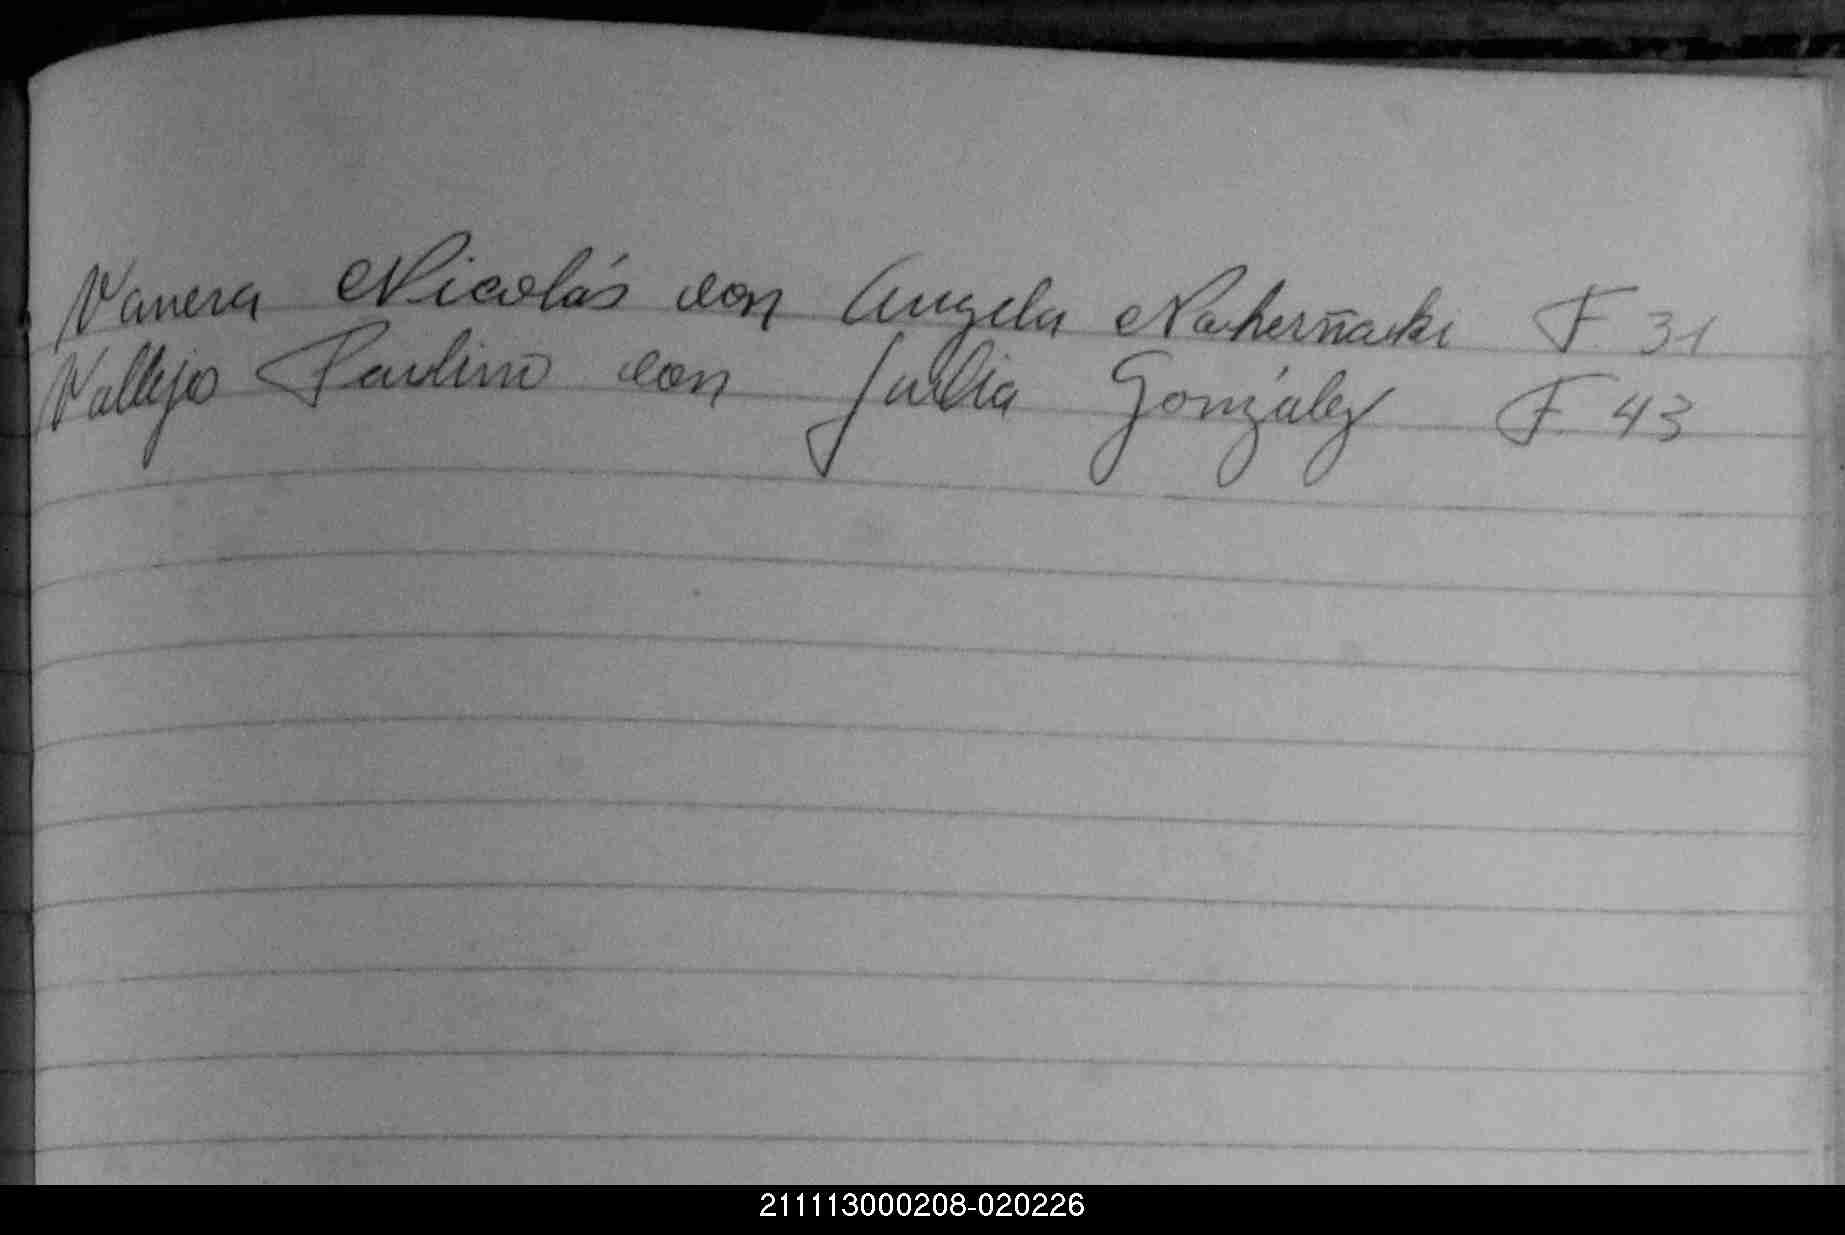 Vanera Nicolás con Angela F 31
Vallejo Paulino con Julia González F 43
211113000208-020226